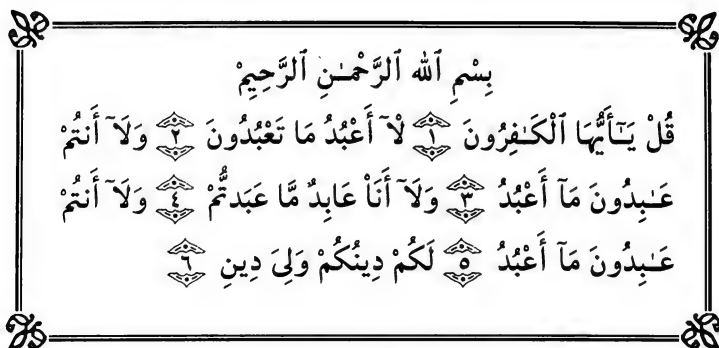 بِسْمِ ٱلله ٱلرَّحْمَـٰنِ ٱلرَّحِيمْ
قُلْ يَـٰٓأَيُّهَا ٱلْكَـٰفِرُونَ ١ لْآ أَعْبُدُ مَا تَعْبُدُونَ ٢ وَلَآ أَنتُمْ
عَـٰبِدُونَ مَآ أَعْبُدُ ٣ وَلَآ أَنَا۠ عَابِدٌ مَّا عَبَدتُّمْ ٤ وَلَآ أَنتُمْ
عَـٰبِدُونَ مَآ أَعْبُدُ ٥ لَكُمْ دِينُكُمْ وَلِىَ دِينِ ٦